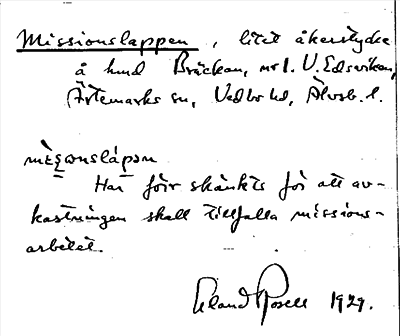 Missionslappen, litet åkerstycke
å hmd Bräckan, nr 1. V. Edsvikan,
Ärtemarks sn, Vedbo hd, Älvsb. l.
Har förr skänkts för att av-
kastningen skall tillfalla missions-
arbetet.
Erland Rosell 1929.